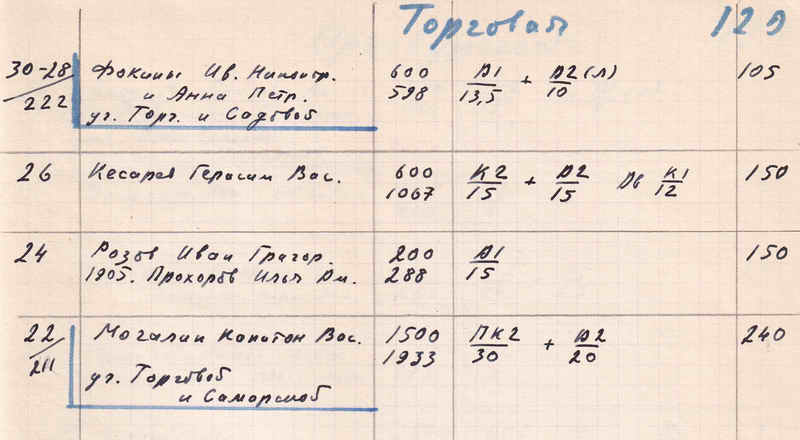 Торговая 129
30-28 Фокины Ив. Никитр. 600 Д1/13,5 + Д2(Л)/10 105
222 и Анна Петр. 598
уг. Торг. и Садовой
26 Кесарев Герасим Вас. 600 К2/15 + Д2/15 Дв К1/12 150
1067
24 Розов Иван Григор. 200 Д1/15 150
1905. Прохоров Илья Дм. 288
22 Могалин Капитон Вас. 1500 ПК2/30 + Д2/20 240
211 1933
уг. Торговой
и Саморской